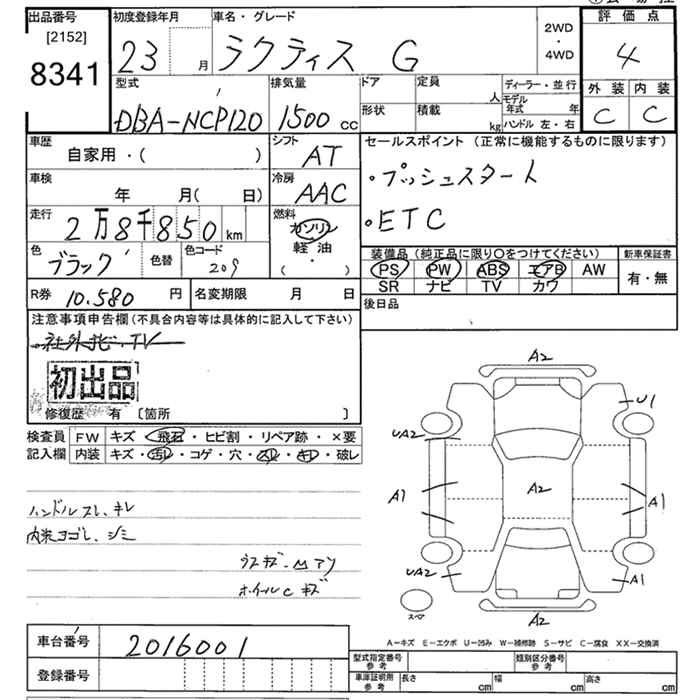 出品番号
[2152]
8341
初度登録年月
23 月
車名・グレード
ラクティス G
2WD
・
4WD
評価点
4
外装 内装
C C
型式
DBA-NCP120
排気量
1500 cc
ドア
形状
定員
人
積載
kg
ディーラー・並行
モデル年式 年
ハンドル 左・右
車歴
自家用・( )
シフト
AT
車検
年 月( 日)
冷房
AAC
走行
2万8千850 km
燃料
ガソリン
軽油
( )
色
ブラック
色替
色コード
209
R券 10.580 円
名変期限 月 日
セールスポイント (正常に機能するものに限ります)
・プッシュスタート
・ETC
装備品 (純正品に限り○をつけてください)
PS PW ABS エアB AW
SR ナビ TV カワ
新車保証書
有・無
後日品
注意事項申告欄 (不具合内容等は具体的に記入して下さい)
・社外ナビ・TV
初出品
修復歴 有 〔箇所 〕
検査員
記入欄
FW キズ・飛石・ヒビ割・リペア跡・×要
内装 キズ・汚レ・コゲ・穴・スレ・キレ・破レ
ハンドルスレ、キレ
内装ヨゴレ、シミ
ウスキズ、凹アリ
ホイールCキズ
A2
U1
UA2
A1
A2
A1
UA2
A1
A2
スペア
A-キズ E-エクボ U-凹み W-補修跡 S-サビ C-腐食 XX-交換済
車台番号 2016001
登録番号
型式指定番号
参考
類別区分番号
参考
車庫証明用
参考
長さ cm
幅 cm
高さ cm